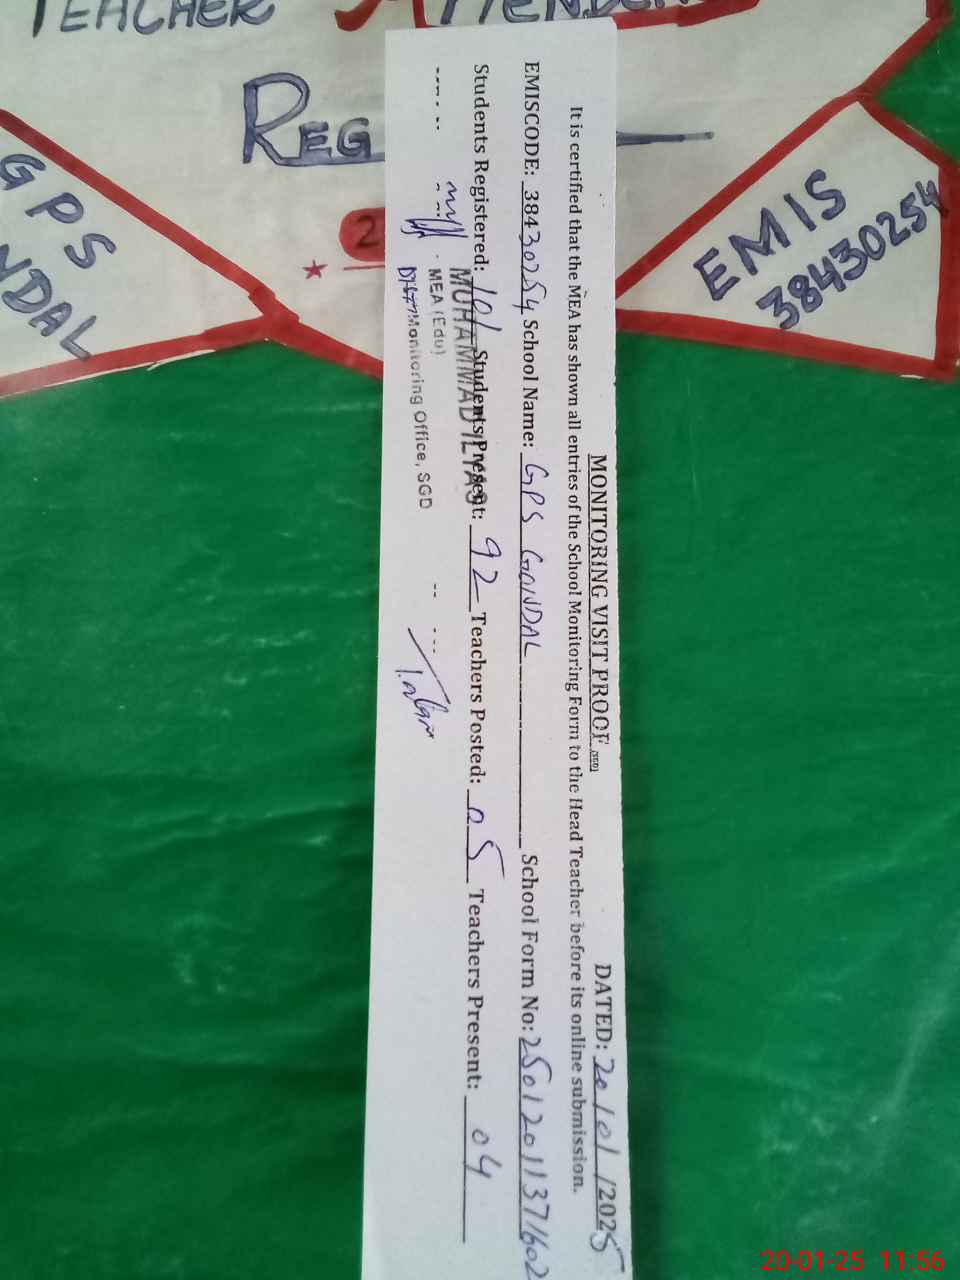 TEACHER ATTENDEN
REG
GPS
NDAL
2
EMIS
38430254
MONITORING VISIT PROOF (SED) DATED: 20/01/2025
It is certified that the MEA has shown all entries of the School Monitoring Form to the Head Teacher before its online submission.
EMISCODE: 38430254 School Name: GPS GONDAL School Form No: 2501201137602
Students Registered: 101 Students Present: 92 Teachers Posted: 05 Teachers Present: 04
MUHAMMAD ILYAS
MEA (Edu)
Monitoring Office, SGD
20-01-25 11:56